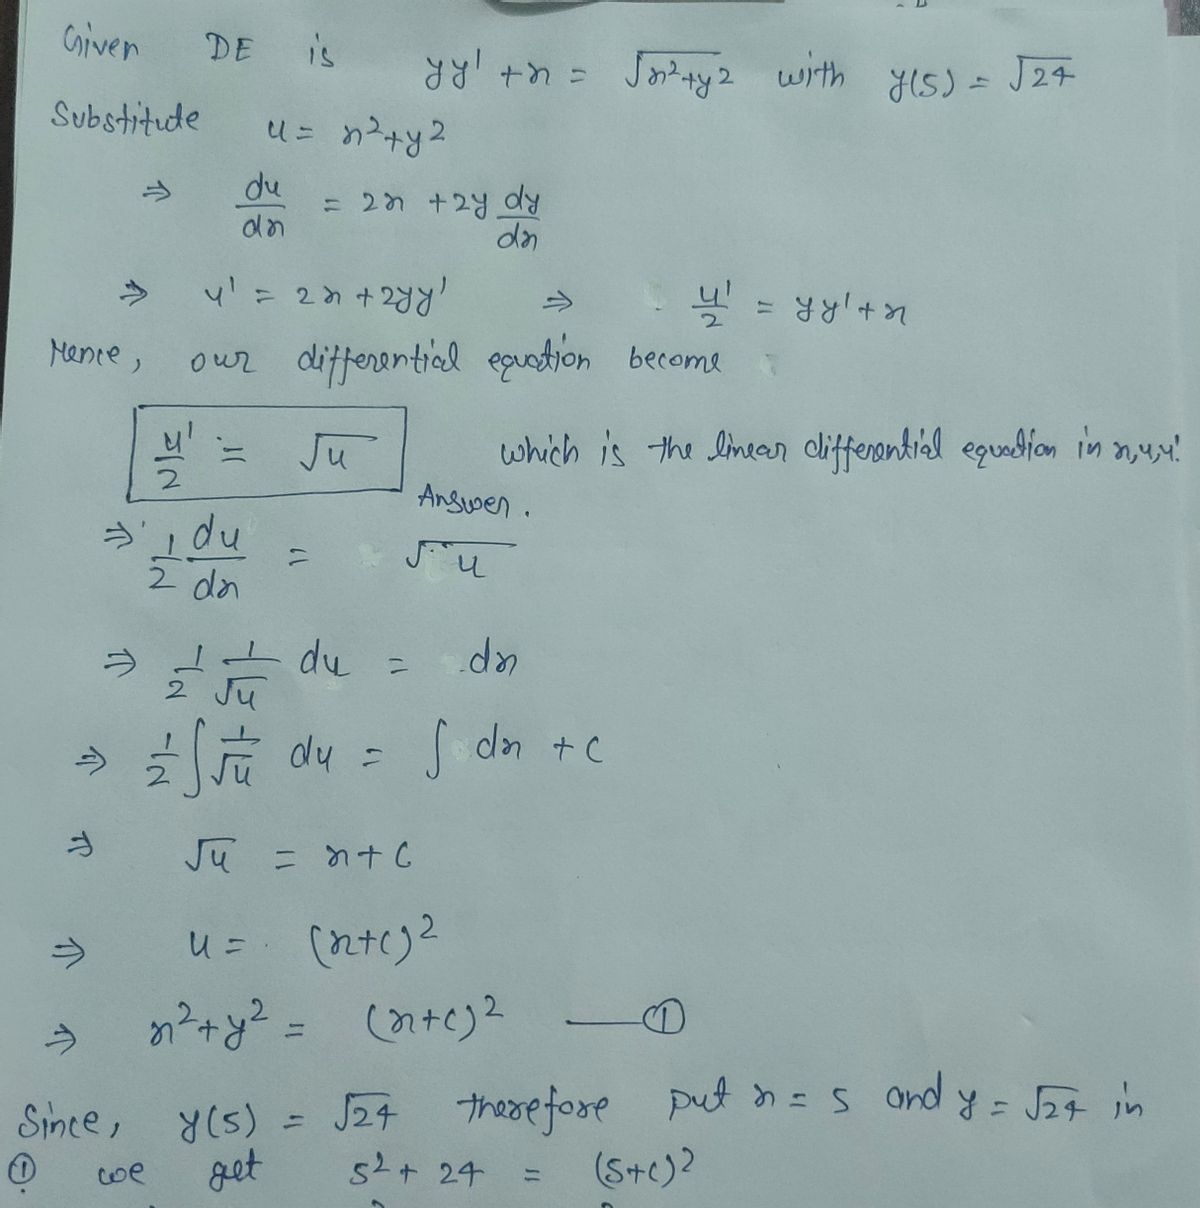 Given DE is yy' + x = √(x²+y²) with y(5) = √24
Substitute u = x²+y²
⇒ du/dx = 2x + 2y dy/dx
⇒ u' = 2x + 2yy' ⇒ u'/2 = yy' + x
Hence, our differential equation become
u'/2 = √u which is the linear differential equation in x,u,u'.
Answer.
⇒ 1/2 du/dx = √u
⇒ 1/2 1/√u du = dx
⇒ 1/2 ∫ 1/√u du = ∫ dx + c
⇒ √u = x + c
⇒ u = (x+c)²
⇒ x²+y² = (x+c)² —— ①
Since, y(5) = √24 therefore put x = 5 and y = √24 in
① we get 5² + 24 = (5+c)²